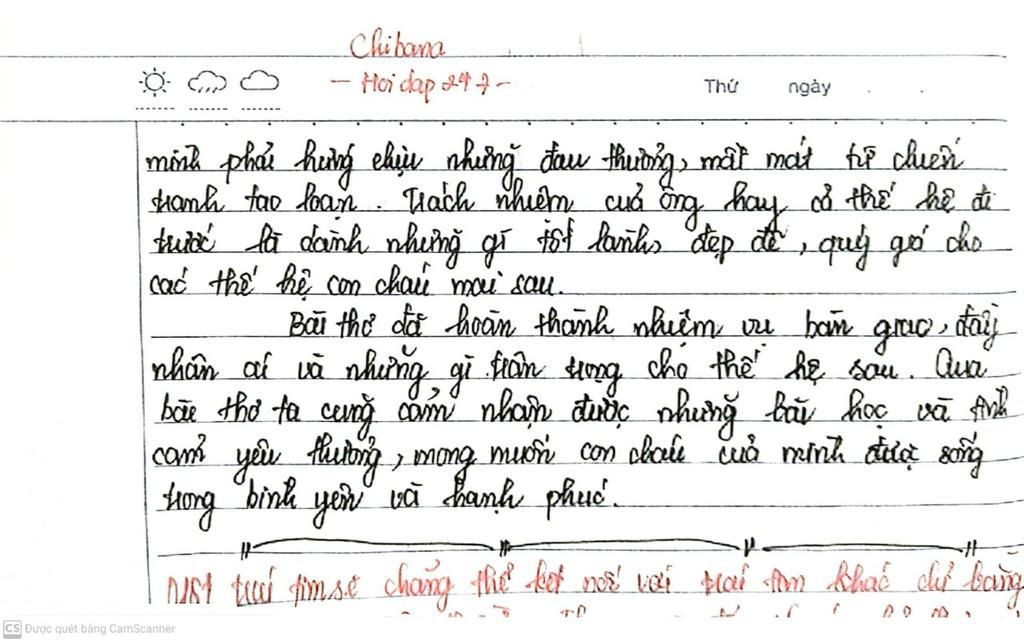 Chibana
- Hoi dap 247 -
Thứ ngày . .
mình phải hứng chịu những đau thương, mất mát từ chiến
tranh tao loạn. Trách nhiệm của ông hay cả thế hệ đi
trước là dành những gì tốt lành, đẹp đẽ, quý giá cho
các thế hệ con cháu mai sau.
Bài thơ đã hoàn thành nhiệm vụ bàn giao, đầy
nhân ái và những gì trân trọng cho thế hệ sau. Qua
bài thơ ta cũng cảm nhận được những bài học và tình
cảm yêu thương, mong muốn con cháu của mình được sống
trong bình yên và hạnh phúc.
Một trái tim sẽ chẳng thể kết nối với trái tim khác chỉ bằng
CS Được quét bằng CamScanner